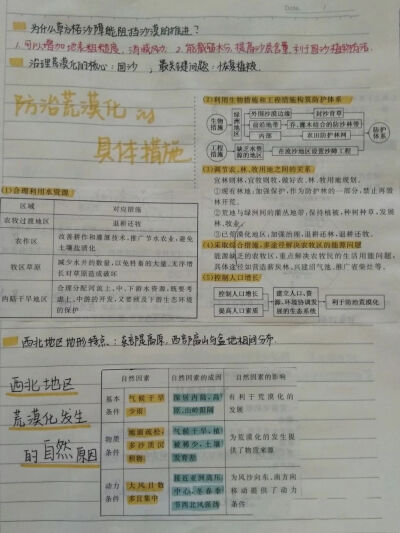 Date.
为什么草方格沙障能阻挡沙漠的推进？
1. 可以增加地表粗糙度，消减风力 2. 能截留水分，提高沙层含量，利于固沙植物存活
治理荒漠化的核心：固沙，最关键问题：恢复植被
防治荒漠化的
具体措施
(1)合理利用水资源
区域 对应措施
农牧过渡地区 退耕还牧
农作区 改善耕作和灌溉技术，推广节水农业，避免土壤盐渍化
牧区草原 减少水井的数量，以免牲畜的大量、无序增长对草原造成破坏
内陆干旱地区 合理分配河流上、中、下游水资源，既要考虑上、中游的开发，又要顾及下游生态环境的保护
(2)利用生物措施和工程措施构筑防护体系
生物措施 绿洲地区 外围沙漠边缘 封沙育草
前沿地带 乔、灌木结合的防沙林带
内部 农田防护林网
防护体系
工程措施 缺乏水资源的地区 在流沙地区设置沙障工程
(3)调节农、林、牧用地之间的关系
宜林则林，宜牧则牧，做好农、林、牧用地规划。
①现有林地：加强保护，作为防护林的一部分，禁止再毁林开荒。
②荒地与绿洲间的灌丛地带，保持植被，种树种草，发展林、牧业。
③已荒漠化地区，加强治理，退耕还林、退耕还牧。
(4)采取综合措施，多途径解决农牧区的能源问题
能源缺乏的农牧区，重点解决农牧民的生活用能问题，具体途径如营造薪炭林、兴建沼气池、推广省柴灶等。
(5)控制人口增长
控制人口增长 提高人口素质
建立人口、资源、环境协调发展的生态系统
利于防治荒漠化
西北地区地的特点：东部是高原，西部高山与盆地相间分布
西北地区
荒漠化发生
的自然原因
自然因素 自然因素的成因 自然因素的影响
基本条件 气候干旱少雨 深居内陆，高原、山岭阻隔 有利于荒漠化的发展
物质条件 地面疏松，多沙质沉积物 气候干旱，植被稀少，土壤发育差 为荒漠化的发生提供了物质来源
动力条件 大风日数多且集中 接近亚洲高压中心，冬春季节西北风强劲 为风沙向东、南方向移动提供了动力条件